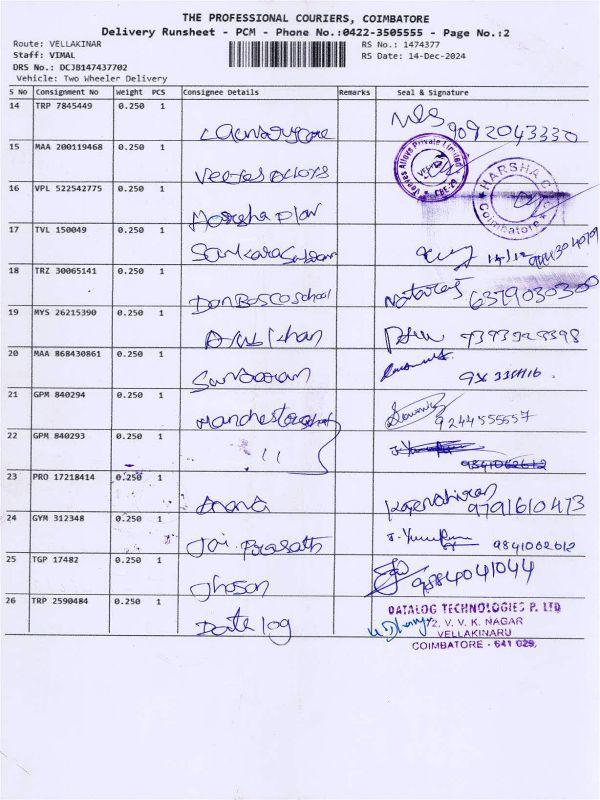 THE PROFESSIONAL COURIERS, COIMBATORE
Delivery Runsheet - PCM - Phone No.:0422-3505555 - Page No.:2
Route: VELLAKINAR RS No.: 1474377
Staff: VIMAL RS Date: 14-Dec-2024
DRS No.: DCJB147437702
Vehicle: Two Wheeler Delivery
S No Consignment No Weight PCS Consignee Details Remarks Seal & Signature
14 TRP 7845449 0.250 1
9092043330
15 MAA 200119468 0.250 1
Veetes Alloys Private Limited CBE-29
16 VPL 522542775 0.250 1
Harsha plar HARSHA Coimbatore
17 TVL 150049 0.250 1
18 TRZ 30065141 0.250 1
Don Bosco school Nataraj 6379030300
19 MYS 26215390 0.250 1
Khan
20 MAA 868430861 0.250 1
21 GPM 840294 0.250 1
Manchester 9244555557
22 GPM 840293 0.250 1
11 9841062612
23 PRO 17218414 0.250 1
Anand 9791610473
24 GYM 312348 0.250 1
Jai Prasath 9841062612
25 TGP 17482 0.250 1
Jhason 9884041044
26 TRP 2590484 0.250 1
Date log DATALOG TECHNOLOGIES P. LTD
72, V. V. K. NAGAR
VELLAKINARU
COIMBATORE - 641 029.